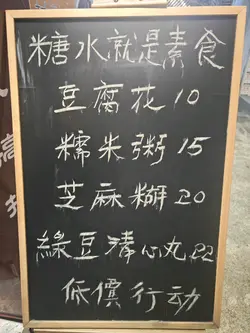 糖水就是素食
豆腐花10
糯米粥15
芝麻糊20
綠豆清心丸22
低價行动